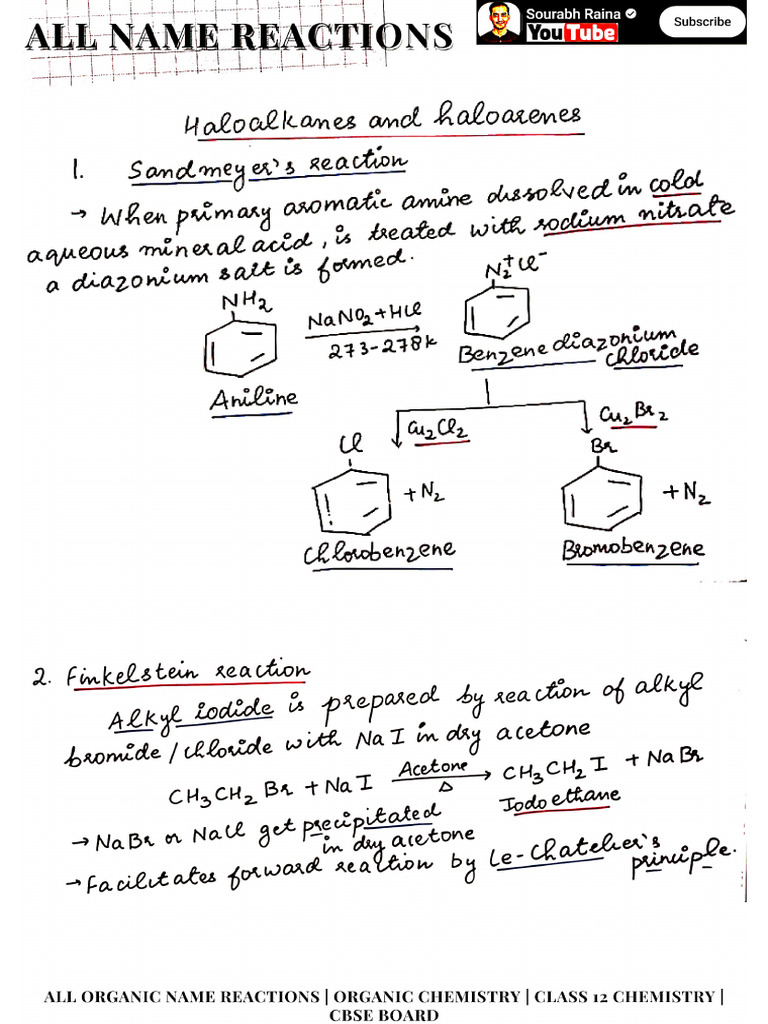 ALL NAME REACTIONS
Sourabh Raina
YouTube
Subscribe
Haloalkanes and haloarenes
1. Sandmeyer's reaction
→ When primary aromatic amine dissolved in cold
aqueous mineral acid, is treated with sodium nitrate
a diazonium salt is formed.
NH2
NaNO2 + HCl
273-278k
N2+Cl-
Aniline
Benzene diazonium
chloride
Cu2Cl2
Cu2Br2
Cl
+ N2
Br
+ N2
Chlorobenzene
Bromobenzene
2. Finkelstein reaction
Alkyl iodide is prepared by reaction of alkyl
bromide/chloride with NaI in dry acetone
CH3CH2Br + NaI Acetone Δ → CH3CH2I + NaBr
Iodoethane
→ NaBr or NaCl get precipitated
in dry acetone
→ Facilitates forward reaction by Le-Chatelier's
principle.
ALL ORGANIC NAME REACTIONS | ORGANIC CHEMISTRY | CLASS 12 CHEMISTRY |
CBSE BOARD